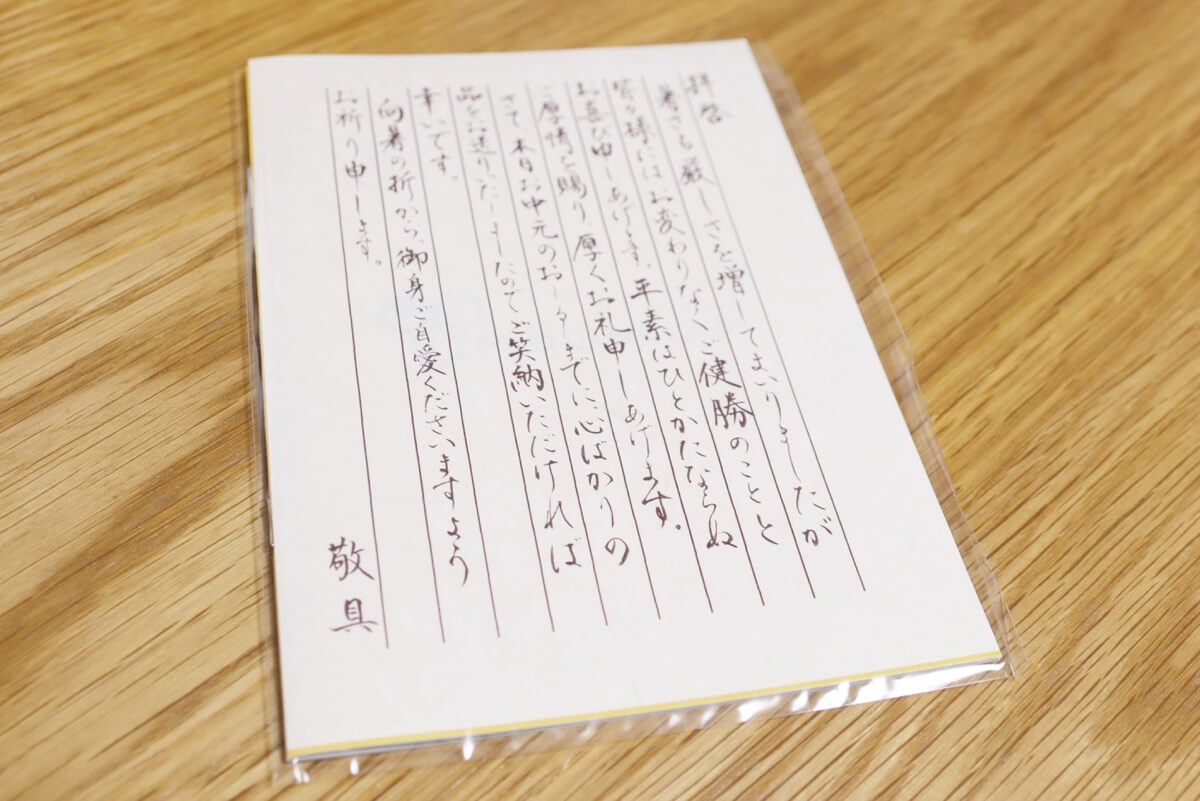 拝啓
暑さも厳しさを増してまいりましたが
皆々様にはお変わりなくご健勝のことと
お喜び申しあげます。平素はひとかたならぬ
ご厚情を賜り、厚くお礼申しあげます。
さて、本日お中元のおしるまでに心ばかりの
品をお送りいたしましたのでご笑納いただければ
幸いです。
向暑の折から、御身ご自愛くださいますよう
お祈り申します。
敬具